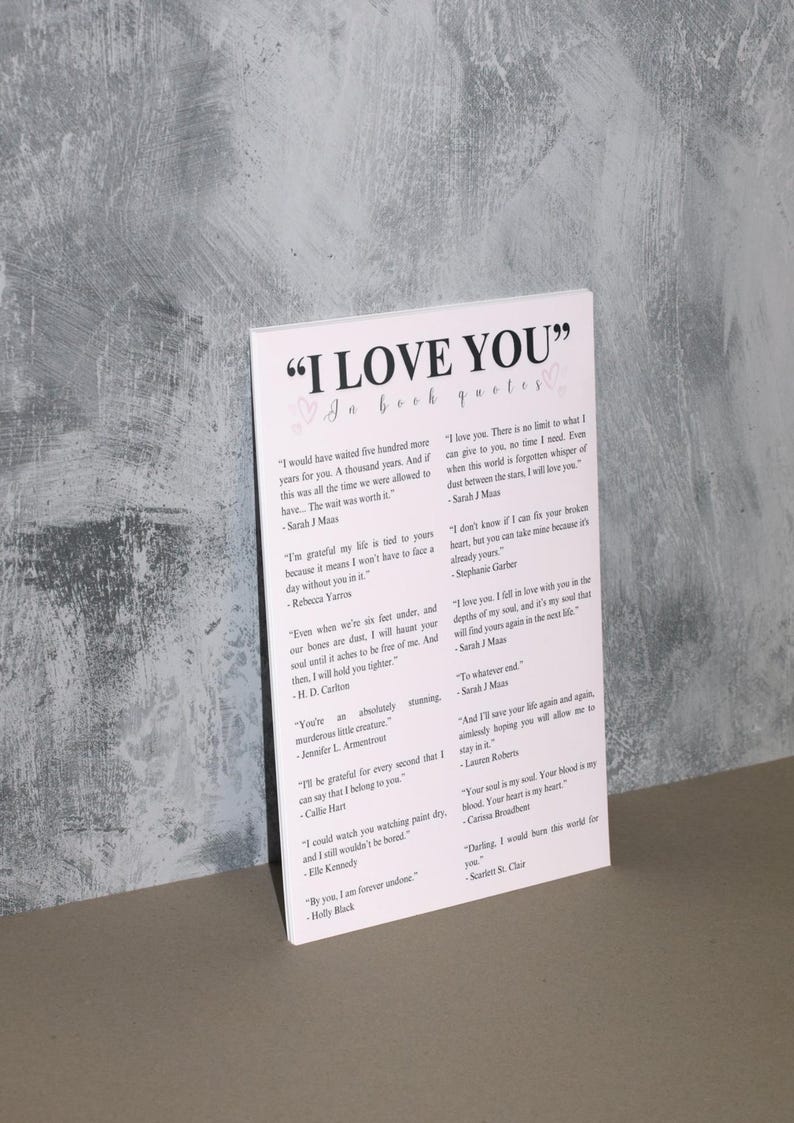 “I LOVE YOU”
In book quotes
“I would have waited five hundred more
years for you. A thousand years. And if
this was all the time we were allowed to
have... The wait was worth it.”
- Sarah J Maas
“I’m grateful my life is tied to yours
because it means I won’t have to face a
day without you in it.”
- Rebecca Yarros
“Even when we’re six feet under, and
our bones are dust, I will haunt your
soul until it aches to be free of me. And
then, I will hold you tighter.”
- H. D. Carlton
“You're an absolutely stunning,
murderous little creature.”
- Jennifer L. Armentrout
“I'll be grateful for every second that I
can say that I belong to you.”
- Callie Hart
“I could watch you watching paint dry,
and I still wouldn’t be bored.”
- Elle Kennedy
“By you, I am forever undone.”
- Holly Black
“I love you. There is no limit to what I
can give to you, no time I need. Even
when this world is forgotten whisper of
dust between the stars, I will love you.”
- Sarah J Maas
“I don't know if I can fix your broken
heart, but you can take mine because it's
already yours.”
- Stephanie Garber
“I love you. I fell in love with you in the
depths of my soul, and it’s my soul that
will find yours again in the next life.”
- Sarah J Maas
“To whatever end.”
- Sarah J Maas
“And I’ll save your life again and again,
aimlessly hoping you will allow me to
stay in it.”
- Lauren Roberts
“Your soul is my soul. Your blood is my
blood. Your heart is my heart.”
- Carissa Broadbent
“Darling, I would burn this world for
you.”
- Scarlett St. Clair